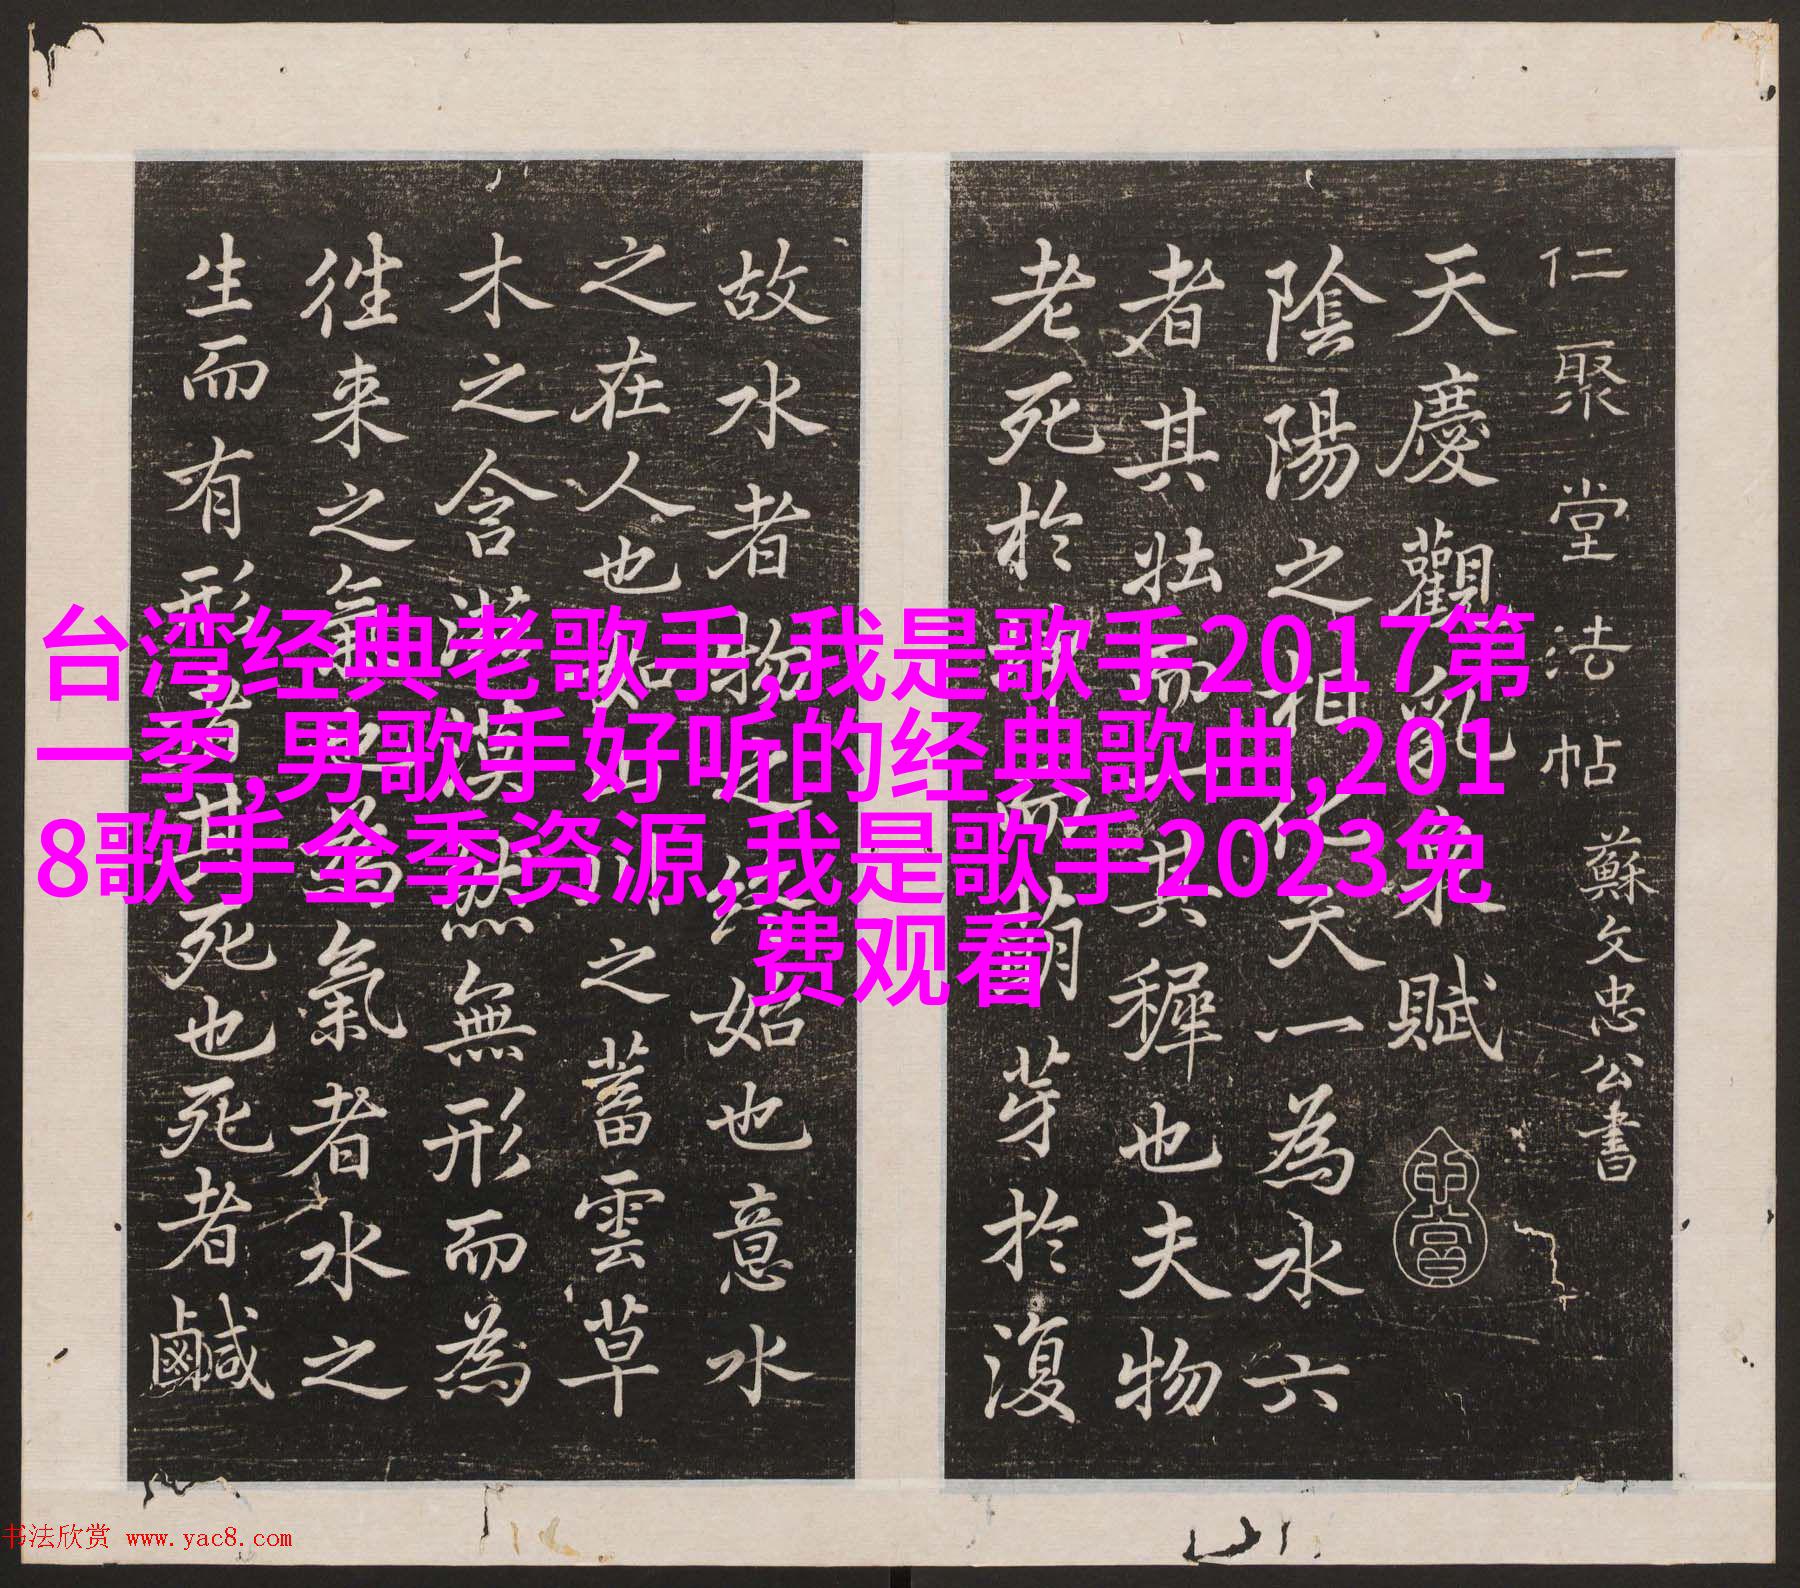 仁聚堂法帖 蘇文忠公書
天慶觀乳泉賦
陰陽之相化天一為水六
者其壯而一者其穉也夫物
老死於 而萌芽於復
故水者物之終始也意水
之在人也如 川之蓄雲草
木之含 無形而為
往来之氣也為氣者水之
生而有形者其死也死者鹹
台湾经典老歌手,我是歌手2017第
一季,男歌手好听的经典歌曲,201
8歌手全季资源,我是歌手2023免
费观看
书法欣赏 www.yac8.com